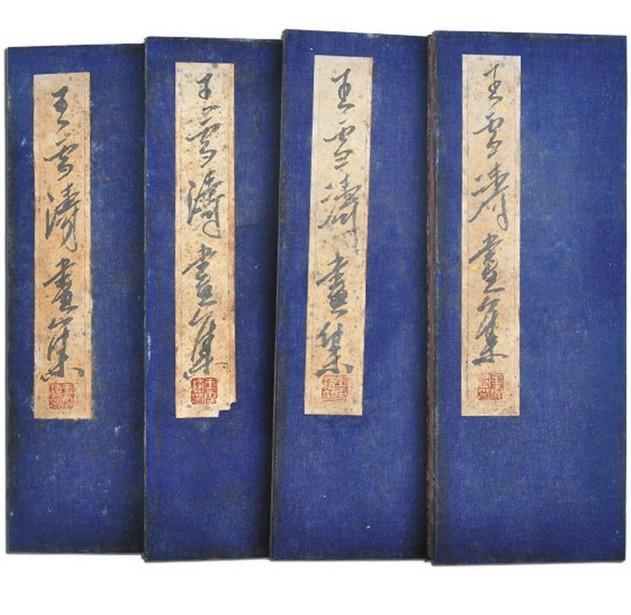 王雪濤畫集
王雪濤畫集
王雪濤畫集
王雪濤畫集